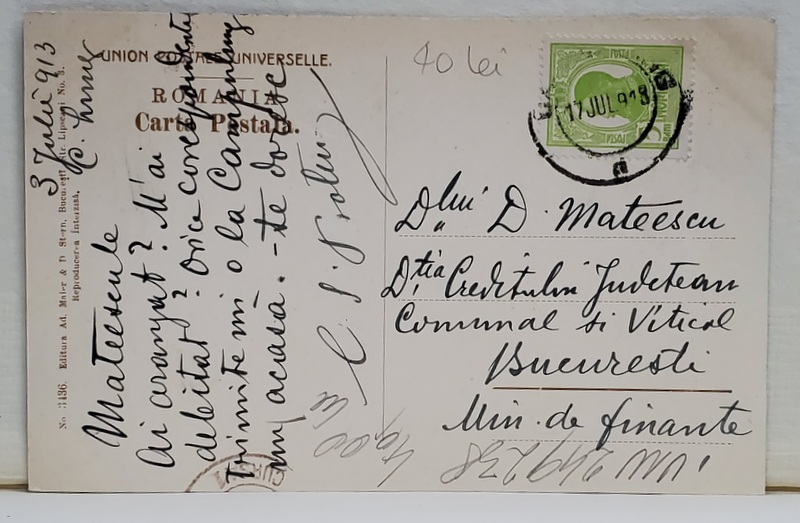 UNION POSTALE UNIVERSELLE.
ROMANIA
Carte Postala.
No 3436. Editura Ad. Maier & D Stern, Bucuresti, Str. Lipscani No. 3.
Reproducerea interzisă.
3 Julie 913
Mateescule
Ai aranjat? M'ai
debitat? Orice corespondentă
trimite mi o la Campulung
nu acasă. - te doresc
40 lei
17 JUL 913
Dlui D. Mateescu
Dtia Creditului Judetean
Comunal si Viticol
Bucuresti
Min. de finante